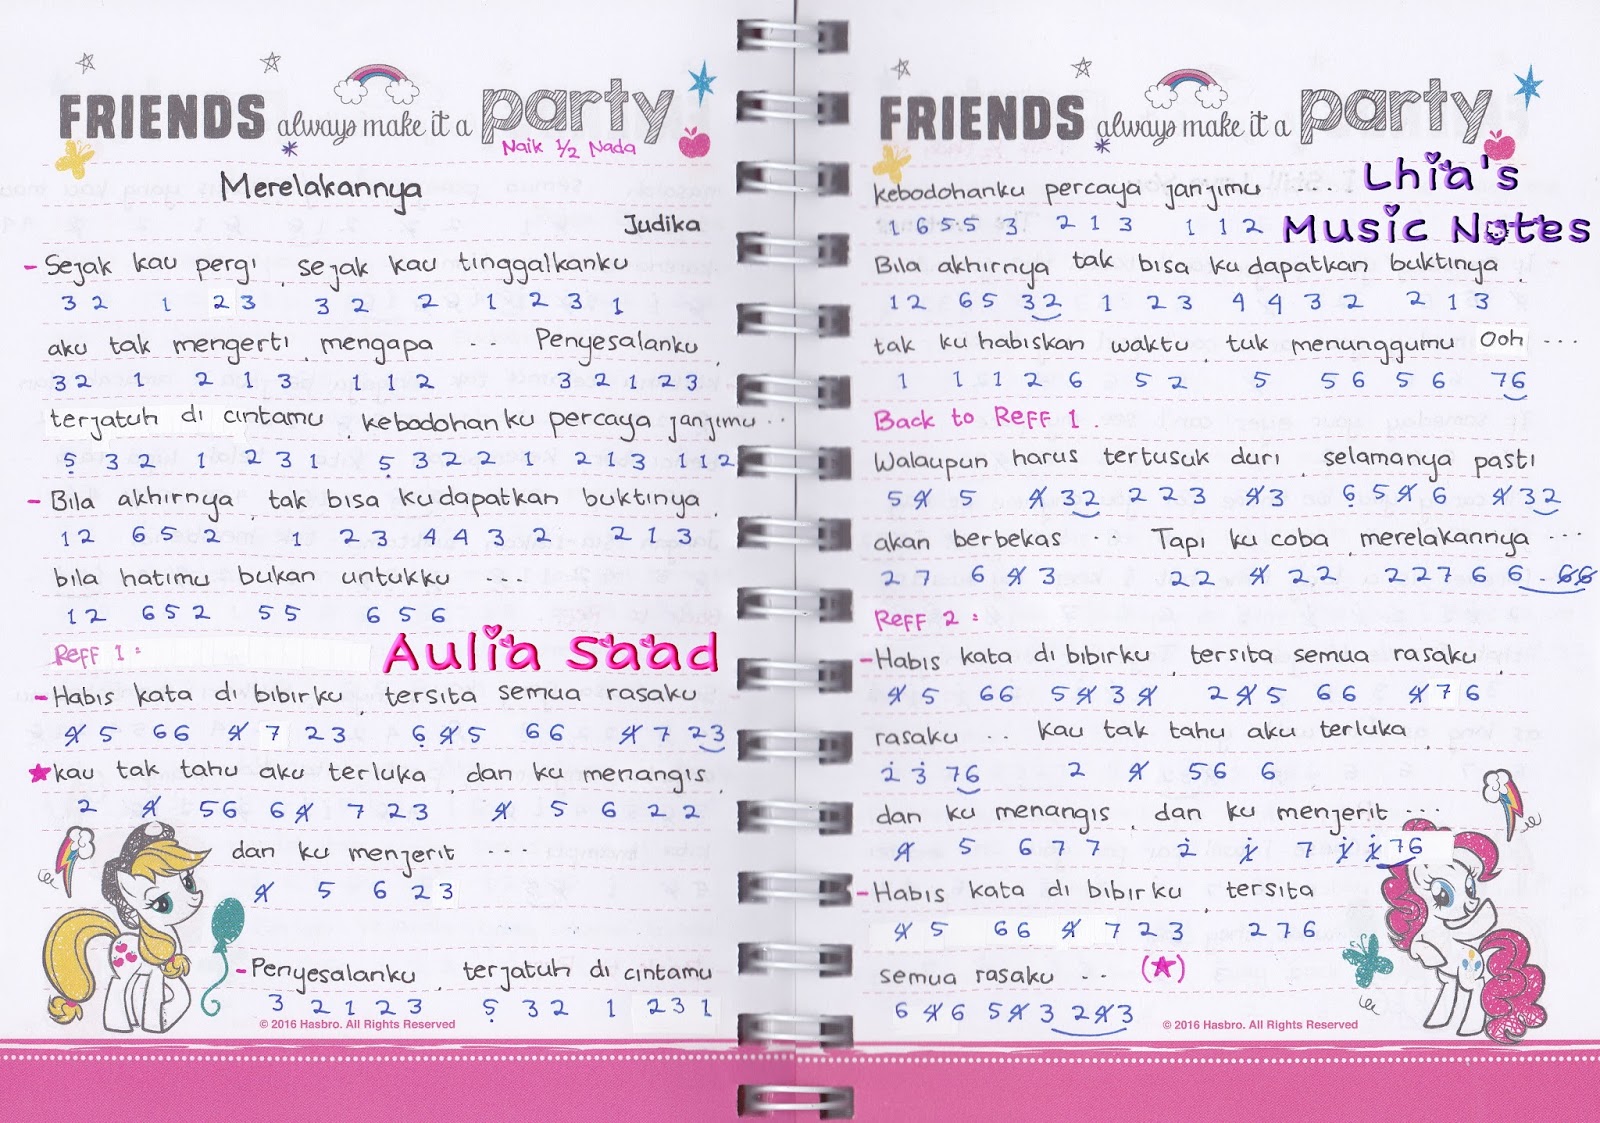 FRIENDS always make it a party
Naik 1/2 Nada
Merelakannya
Judika
- Sejak kau pergi, sejak kau tinggalkanku
3 2 1 2 3 3 2 2 1 2 3 1
aku tak mengerti, mengapa .. Penyesalanku,
3 2 1 2 1 3 1 1 2 3 2 1 2 3
terjatuh di cintamu, kebodohanku percaya janjimu ..
5̣ 3 2 1 2 3 1 5̣ 3 2 2 1 2 1 3 1 1 2
- Bila akhirnya, tak bisa kudapatkan buktinya,
1 2 6 5 2 1 2 3 4 4 3 2 2 1 3
bila hatimu bukan untukku ...
1 2 6 5 2 5 5 6 5 6
Reff 1 :
Aulia Saad
- Habis kata di bibirku, tersita semua rasaku
4̸ 5 6 6 4̸ 7 2 3 6̣ 4̸ 5 6 6 4̸ 7 2 3
★ kau tak tahu aku terluka, dan ku menangis,
2 4̸ 5 6 6 4̸ 7 2 3 4̸ 5 6 2 2
dan ku menjerit ...
4̸ 5 6 2 3
- Penyesalanku, terjatuh di cintamu
3 2 1 2 3 5̣ 3 2 1 2 3 1
© 2016 Hasbro. All Rights Reserved
FRIENDS always make it a party
Lhia's
Music Notes
kebodohanku percaya janjimu ...
1 6 5 5 3 2 1 3 1 1 2
Bila akhirnya tak bisa kudapatkan buktinya,
1 2 6 5 3 2 1 2 3 4 4 3 2 2 1 3
tak kuhabiskan waktu, tuk menunggumu Ooh ...
1 1 1 2 6 5 2 5 5 6 5 6 7 6
Back to Reff 1.
Walaupun harus tertusuk duri, selamanya pasti
5 4̸ 5 4̸ 3 2 2 2 3 4̸ 3 6̣ 5 4̸ 6 4̸ 3 2
akan berbekas .. Tapi ku coba, merelakannya ...
2 7 6 4̸ 3 2 2 4̸ 2 2 2 2 7 6 6 . 6̸ 6̸
Reff 2 :
- Habis kata di bibirku, tersita semua rasaku,
4̸ 5 6 6 5 4̸ 3 4̸ 2 4̸ 5 6 6 4̸ 7 6
rasaku .. kau tak tahu aku terluka,
2̇ 3̇ 7 6 2 4̸ 5 6 6
dan ku menangis, dan ku menjerit ...
4̸ 5 6 7 7 2̇ 1̸̇ 7 1̸̇ 1̸̇ 7 6
- Habis kata di bibirku, tersita
4̸ 5 6 6 4̸ 7 2 3 2 7 6
semua rasaku .. (★)
6 4̸ 6 5 4̸ 3 2 4̸ 3
© 2016 Hasbro. All Rights Reserved